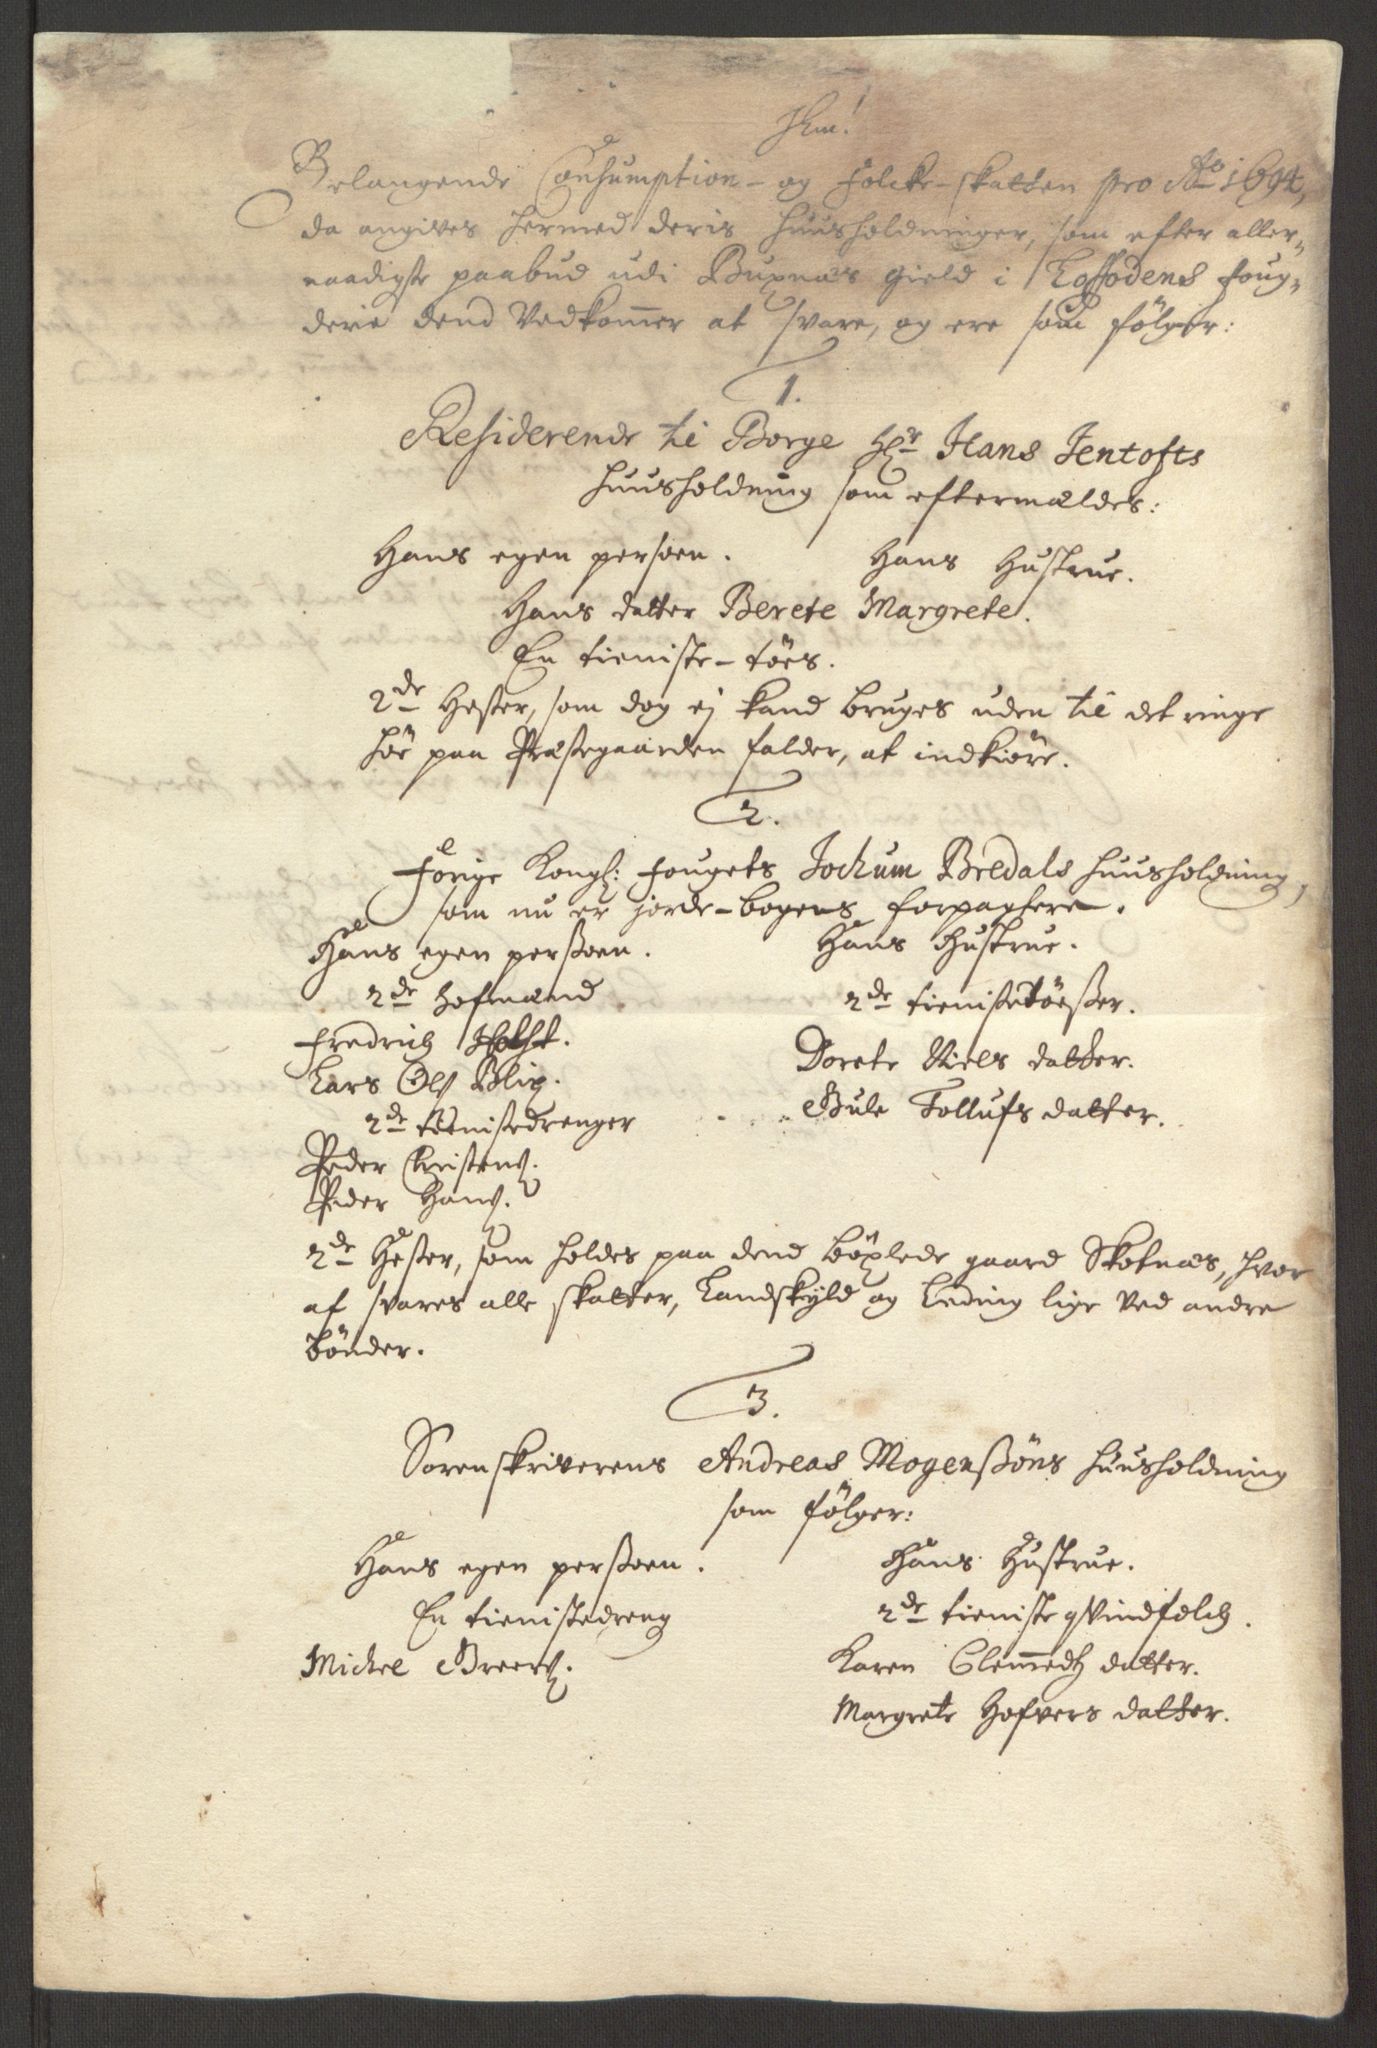 Jhm!
Belangende Conhumption- og Folcke-skatten pro Ao 1694,
da angives hermed deris huusholdninger, som efter aller-
naadigste paabud udi Buxnæs gield i Loffodens foug-
derie dend Vedkommer at svare, og ere som fölger:
1.
Residerende til Borge Hr Hans Jentofts
huusholdning som eftermældes:
Hans egen persoen. Hans Hustrue.
Hans datter Berete Margrete.
En tieniste-töes.
2de Hester, som dog ej kand bruges uden til det ringe
höe paa Præstegaarden falder, at indkiöre.
2.
Forige Kongl: fougets Jochum Bredals huusholdning,
som nu er jorde-bogens forpagtere.
Hans egen perßoen. Hans Hustrue.
2de hofmænd 2de tienisteTöeßer.
Fredrich
Lars Ols Blix. Dorete Niels datter.
2de tienistedrenger Gule Tollufs datter.
Peder Christens.
Peder Hans.
2de Hester, som holdes paa dend böxlede gaard Skotnæs, hvor
af svares alle skatter, Landskyld og Leding lige ved andre
bönder.
3.
Sorenskriverens Andreas Mogenßöns huusholdning
som fölger:
Hans egen perßoen. Hans Hustrue.
En tienistedreng 2de tieniste qvindfolch.
Michel Greers. Karen Clemmedtz datter.
Margrete Hofvers datter.